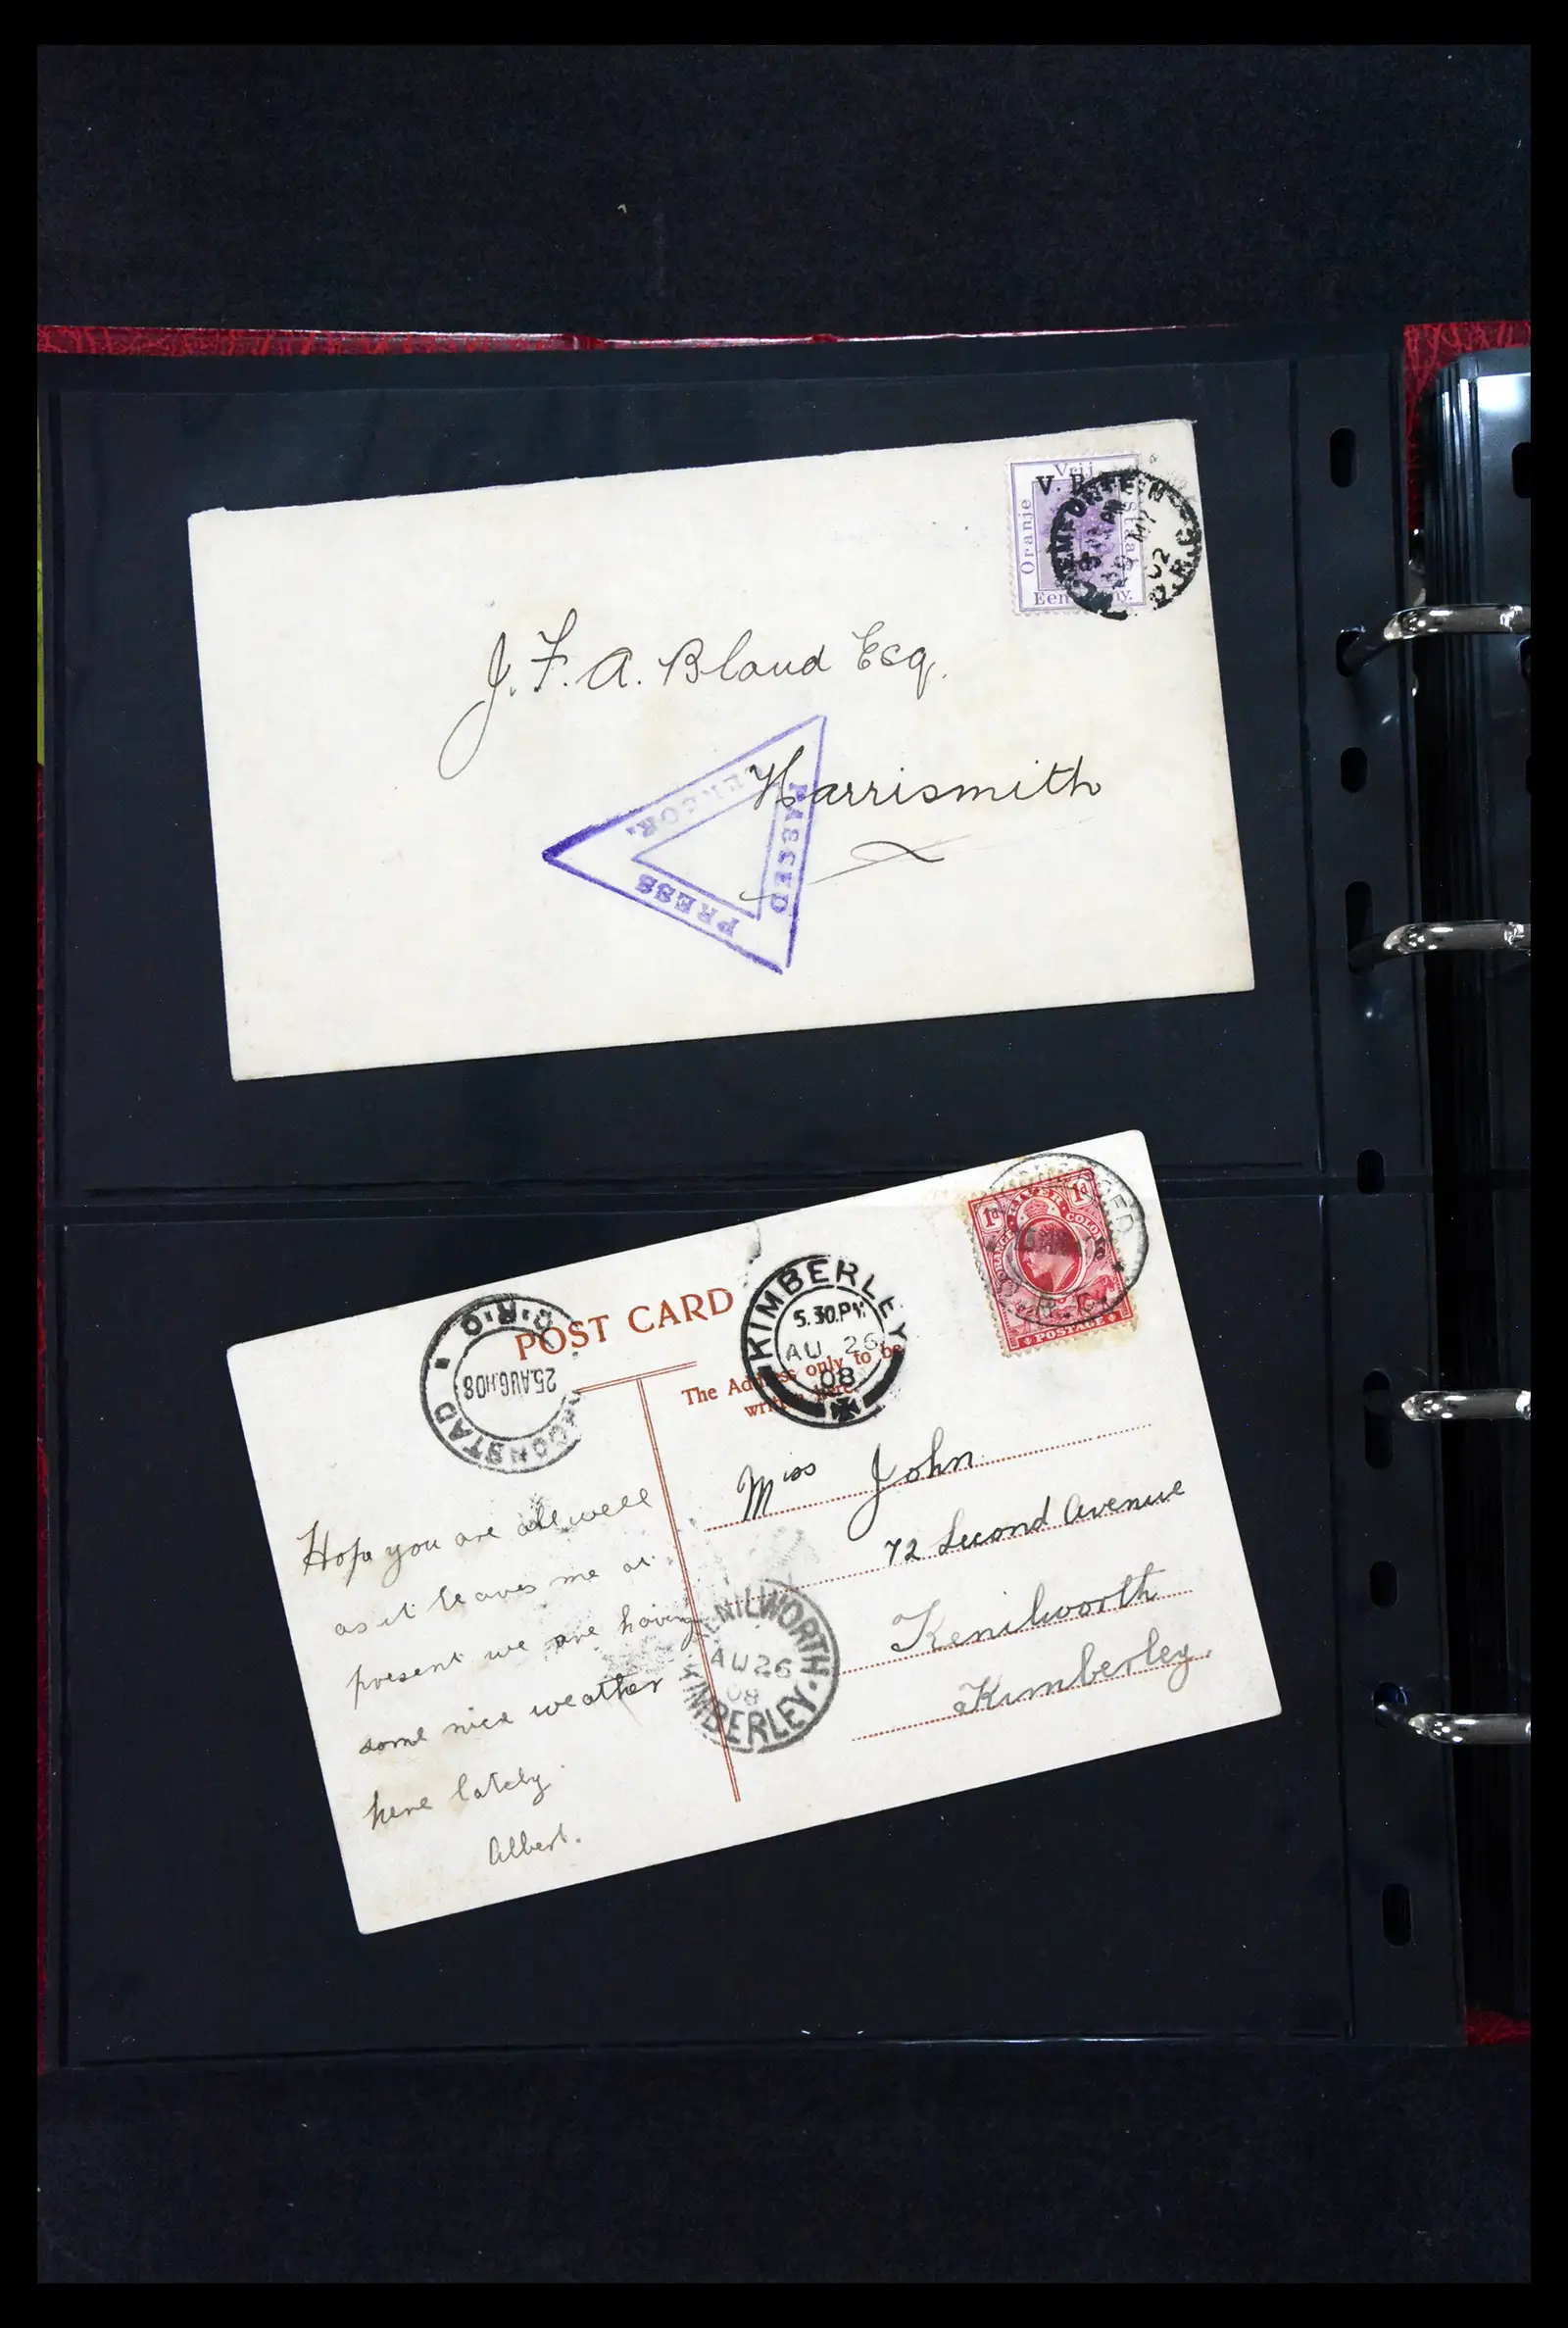 Vrij
V. R.
Oranje
Staat
Een
BLOEMFONTEIN
MY
02
O.R.C.
J. F. A. Bland Esq.
Harrismith
PASSED
PRESS
CENSOR.
1d
RIVER
1d
ORANGE
COLONY
POSTAGE
POST CARD
The Address only to be
written here.
O.R.C
25.AUG.08
KROONSTAD
KIMBERLEY
5.30.PM
AU 26
08
Miss John
72 Second Avenue
Kenilworth
Kimberley.
KENILWORTH
AU 26
08
KIMBERLEY
Hope you are all well
as it leaves me at
present we are having
some nice weather
here lately.
Albert.